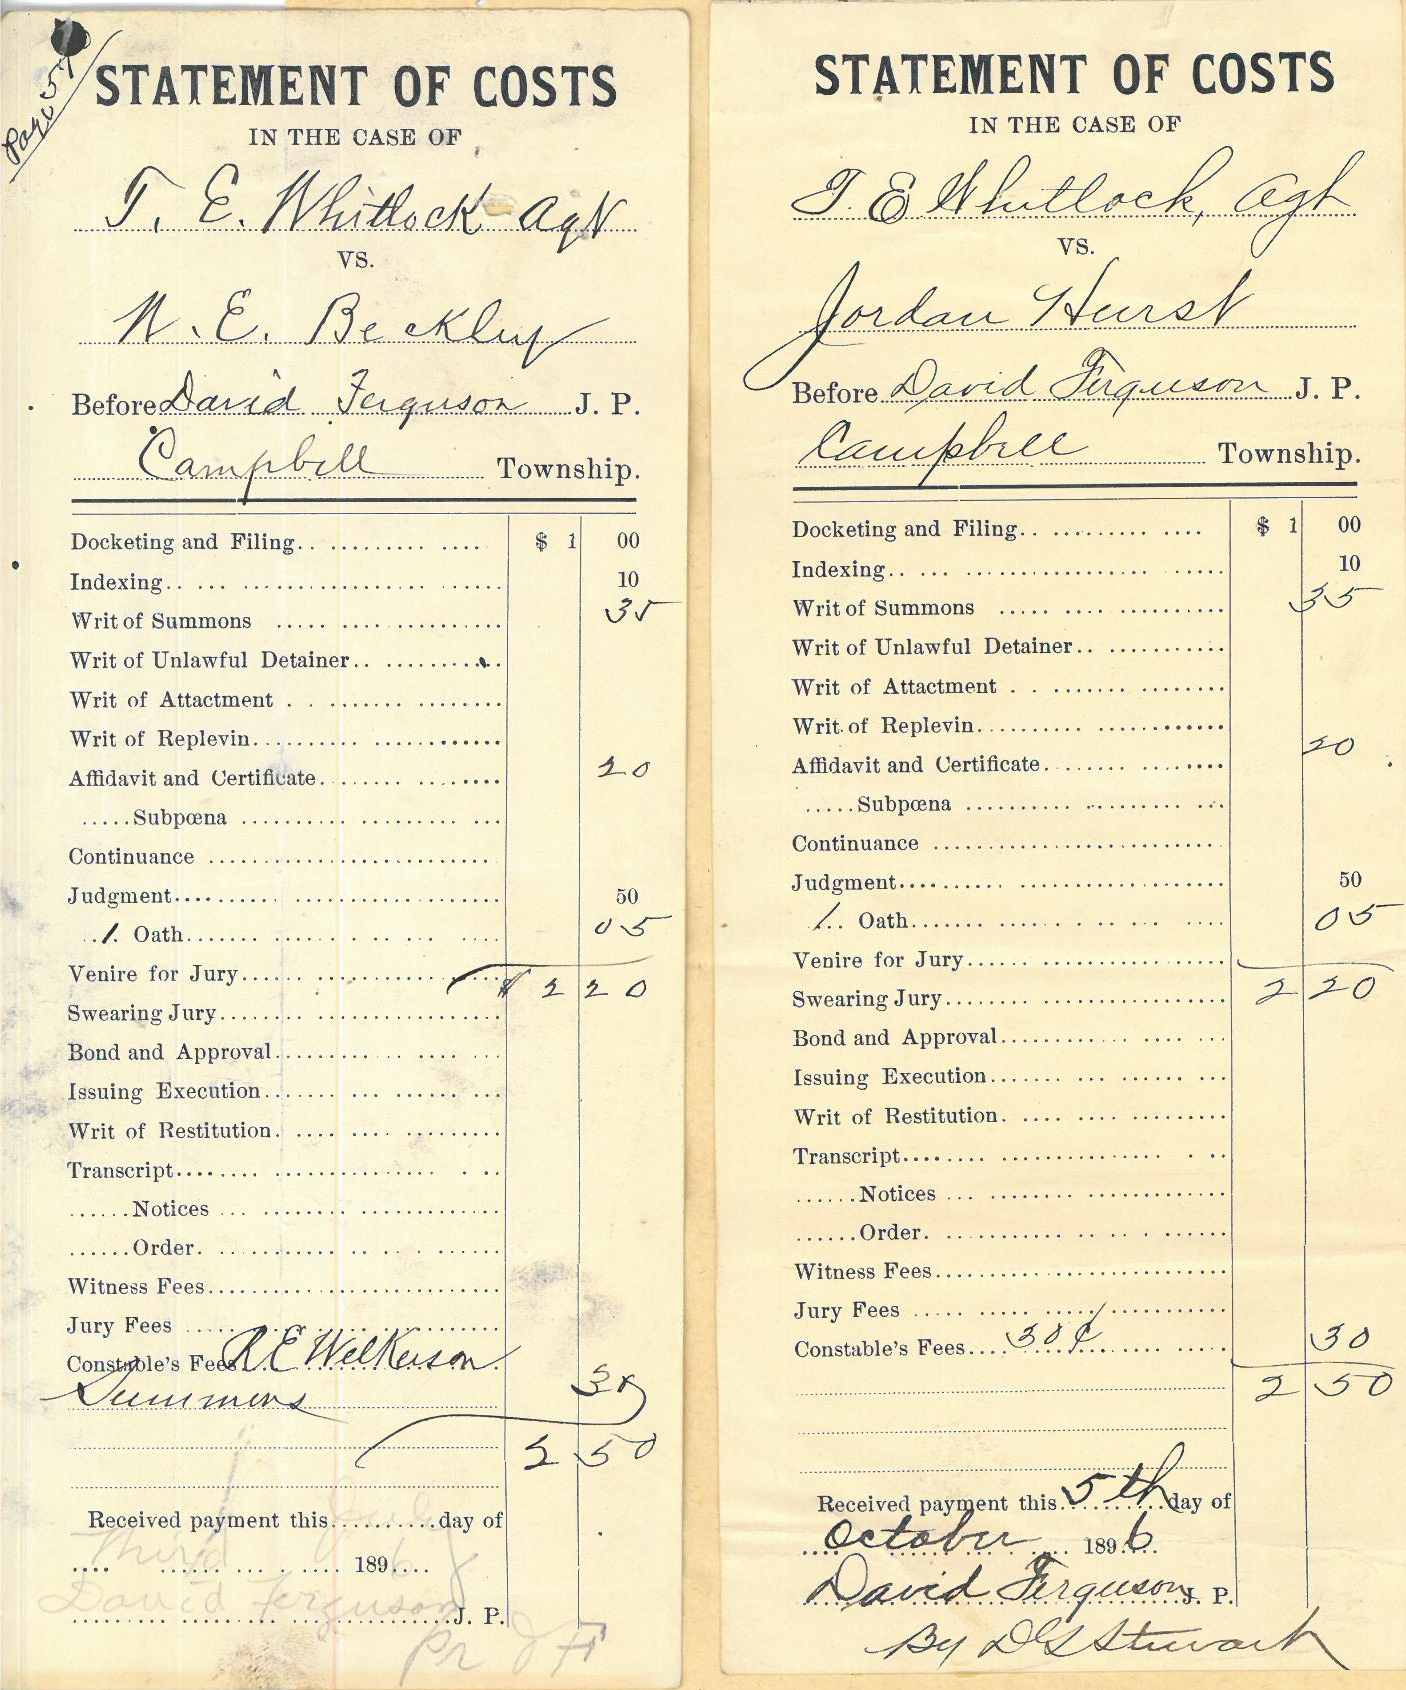 Page 57
STATEMENT OF COSTS
IN THE CASE OF
T. E. Whitlock Agt
VS.
W. E. Beckley
Before David Ferguson J. P.
Campbell Township.
Docketing and Filing $ 1 00
Indexing 10
Writ of Summons 35
Writ of Unlawful Detainer
Writ of Attactment
Writ of Replevin
Affidavit and Certificate 20
Subpœna
Continuance
Judgment 50
1 Oath 05
Venire for Jury $ 2 20
Swearing Jury
Bond and Approval
Issuing Execution
Writ of Restitution
Transcript
Notices
Order
Witness Fees
Jury Fees
Constable's Fees R E Welkerson
Summons 30
2 50
Received payment this day of
Third 1896
David Ferguson J. P.
STATEMENT OF COSTS
IN THE CASE OF
T. E Whitlock, Agt
VS.
Jordan Hurst
Before David Ferguson J. P.
Campbell Township.
Docketing and Filing $ 1 00
Indexing 10
Writ of Summons 35
Writ of Unlawful Detainer
Writ of Attactment
Writ of Replevin
Affidavit and Certificate 20
Subpœna
Continuance
Judgment 50
1 Oath 05
Venire for Jury
Swearing Jury 2 20
Bond and Approval
Issuing Execution
Writ of Restitution
Transcript
Notices
Order
Witness Fees
Jury Fees
Constable's Fees 30¢ 30
2 50
Received payment this 5th day of
October 1896.
David Ferguson J. P.
By D G Stewart